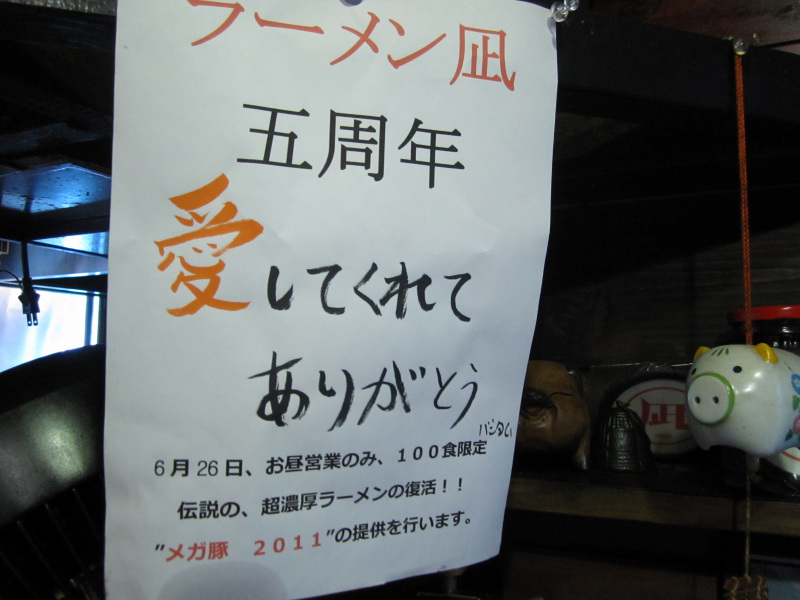 ラーメン凪
五周年
愛してくれて
ありがとう
6月26日、お昼営業のみ、１００食限定
伝説の、超濃厚ラーメンの復活！！
”メガ豚　２０１１”の提供を行います。
凪